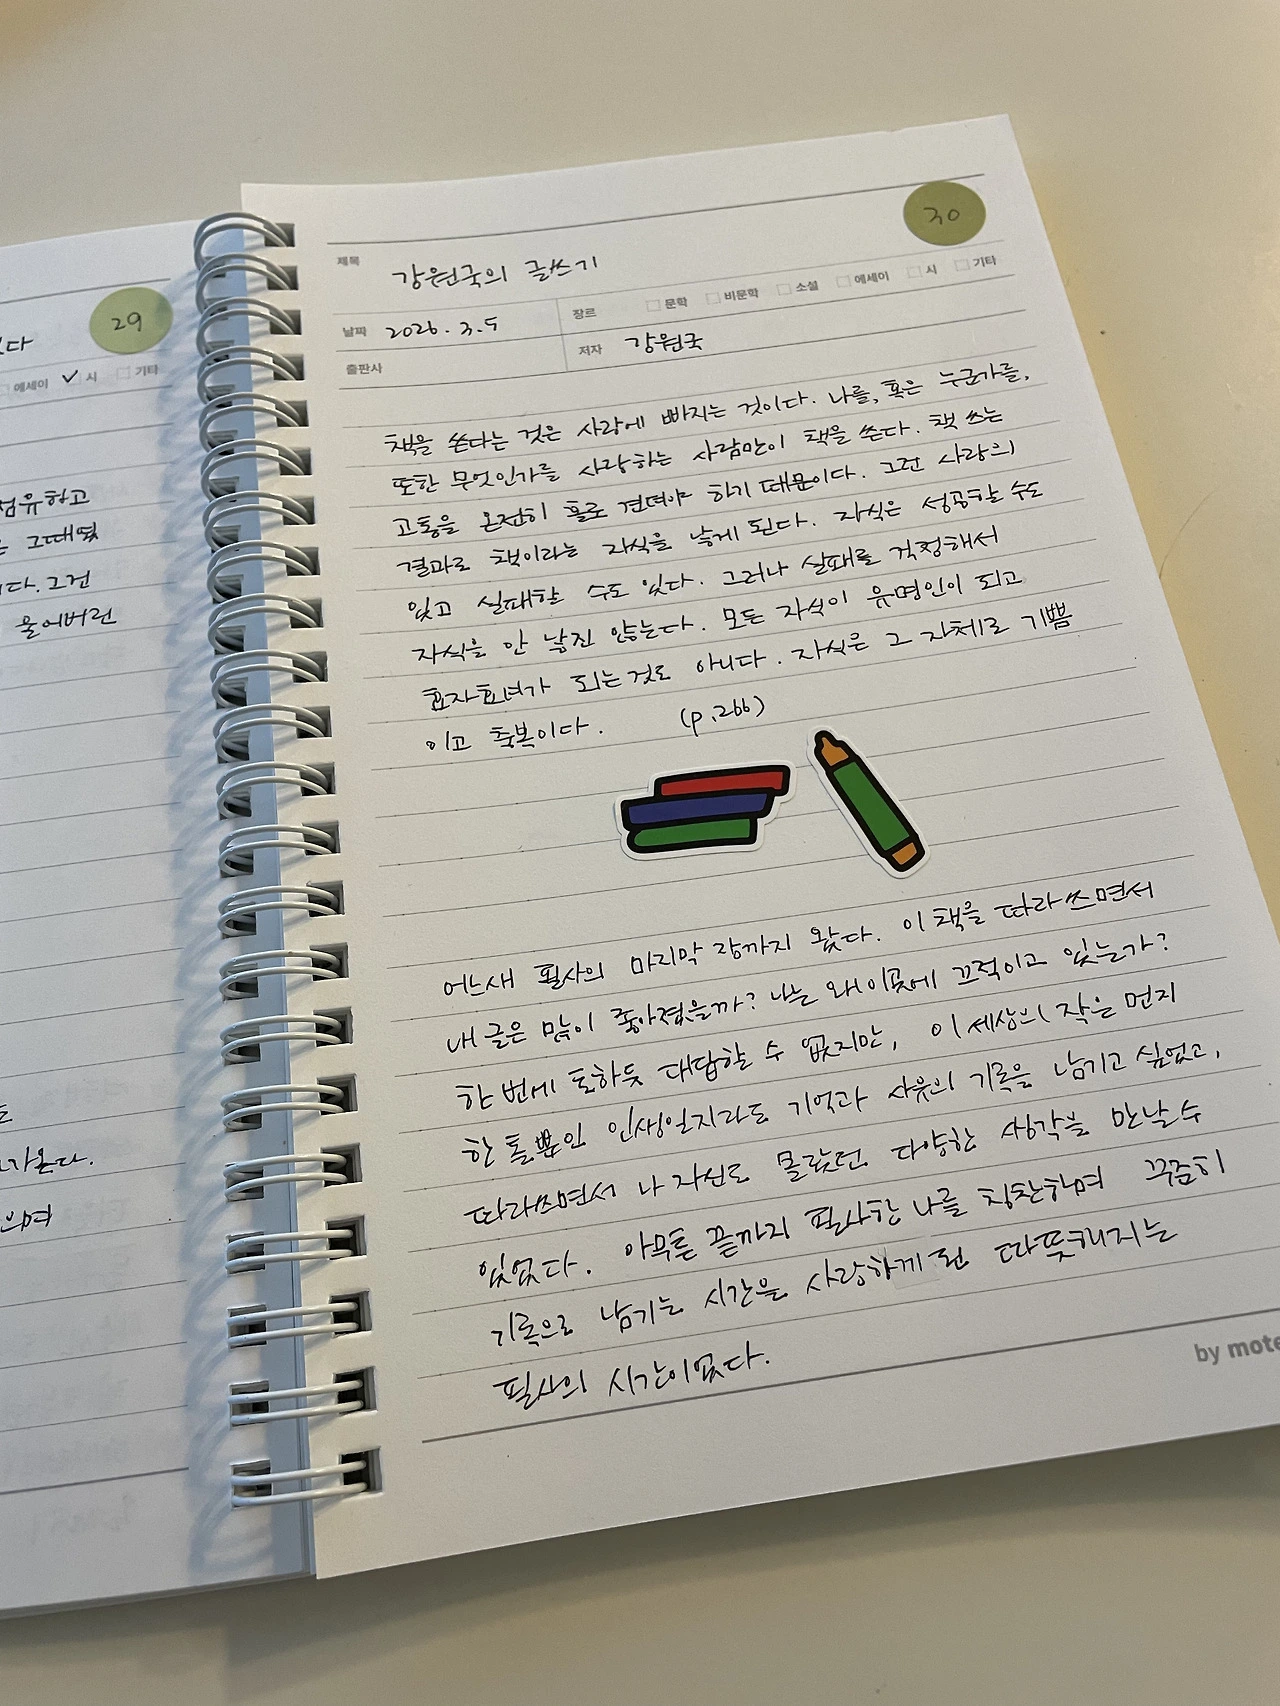 29
에세이 ✓ 시 기타
점유하고
그때였
다. 그건
울어버린
가온다.
30
제목 강원국의 글쓰기
장르 문학 비문학 소설 에세이 시 기타
날짜 2026. 3. 5
저자 강원국
출판사
책을 쓴다는 것은 사랑에 빠지는 것이다. 나를, 혹은 누군가를,
또한 무엇인가를 사랑하는 사람만이 책을 쓴다. 책 쓰는
고통을 온전히 홀로 견뎌야 하기 때문이다. 그런 사랑의
결과로 책이라는 자식을 낳게 된다. 자식은 성공할 수도
있고 실패할 수도 있다. 그러나 실패를 걱정해서
자식을 안 낳진 않는다. 모든 자식이 유명인이 되고
효자효녀가 되는 것도 아니다. 자식은 그 자체로 기쁨
이고 축복이다. (p.266)
어느새 필사의 마지막 장까지 왔다. 이 책을 따라쓰면서
내 글은 많이 좋아졌을까? 나는 왜 이곳에 끄적이고 있는가?
한 번에 토하듯 대답할 수 없지만, 이 세상의 작은 먼지
한 톨뿐인 인생일지라도 기억과 사유의 기록을 남기고 싶었고,
따라쓰면서 나 자신도 몰랐던 다양한 생각을 만날 수
있었다. 아무튼 끝까지 필사한 나를 칭찬하며 꾸준히
기록으로 남기는 시간을 사랑하게 된 따뜻해지는
필사의 시간이었다.
by mote